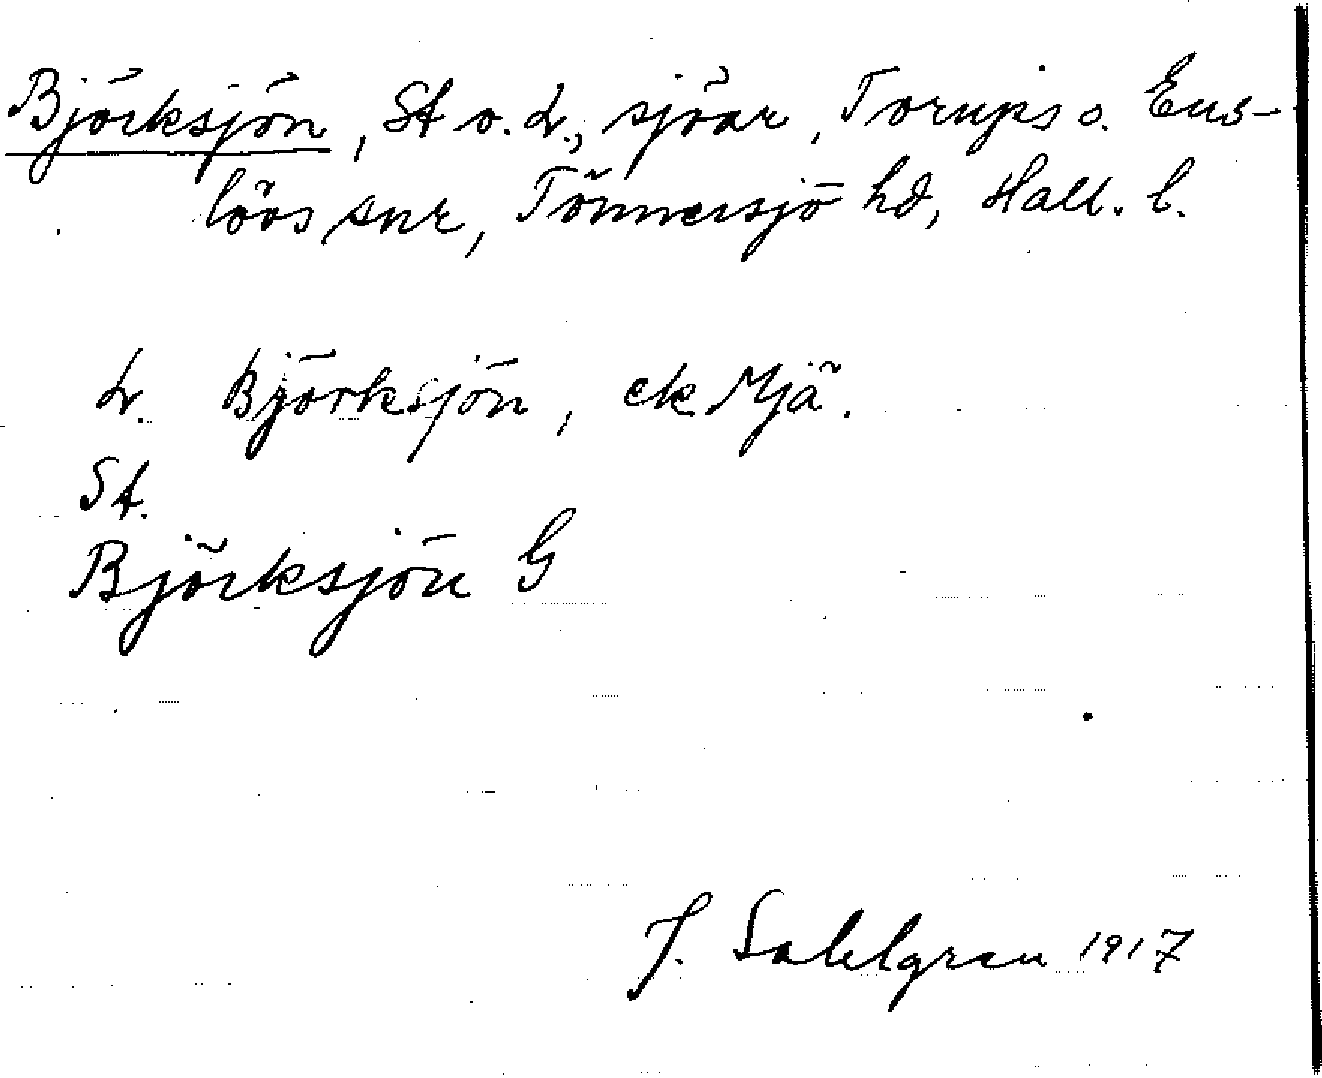 Björksjön, St o. L., sjöar, Torups o. Ens-
lövs snr, Tönnersjö hd, Hall. l.
L. Björksjön, ek Mjä.
St.
Björksjön G
J. Sahlgren 1917